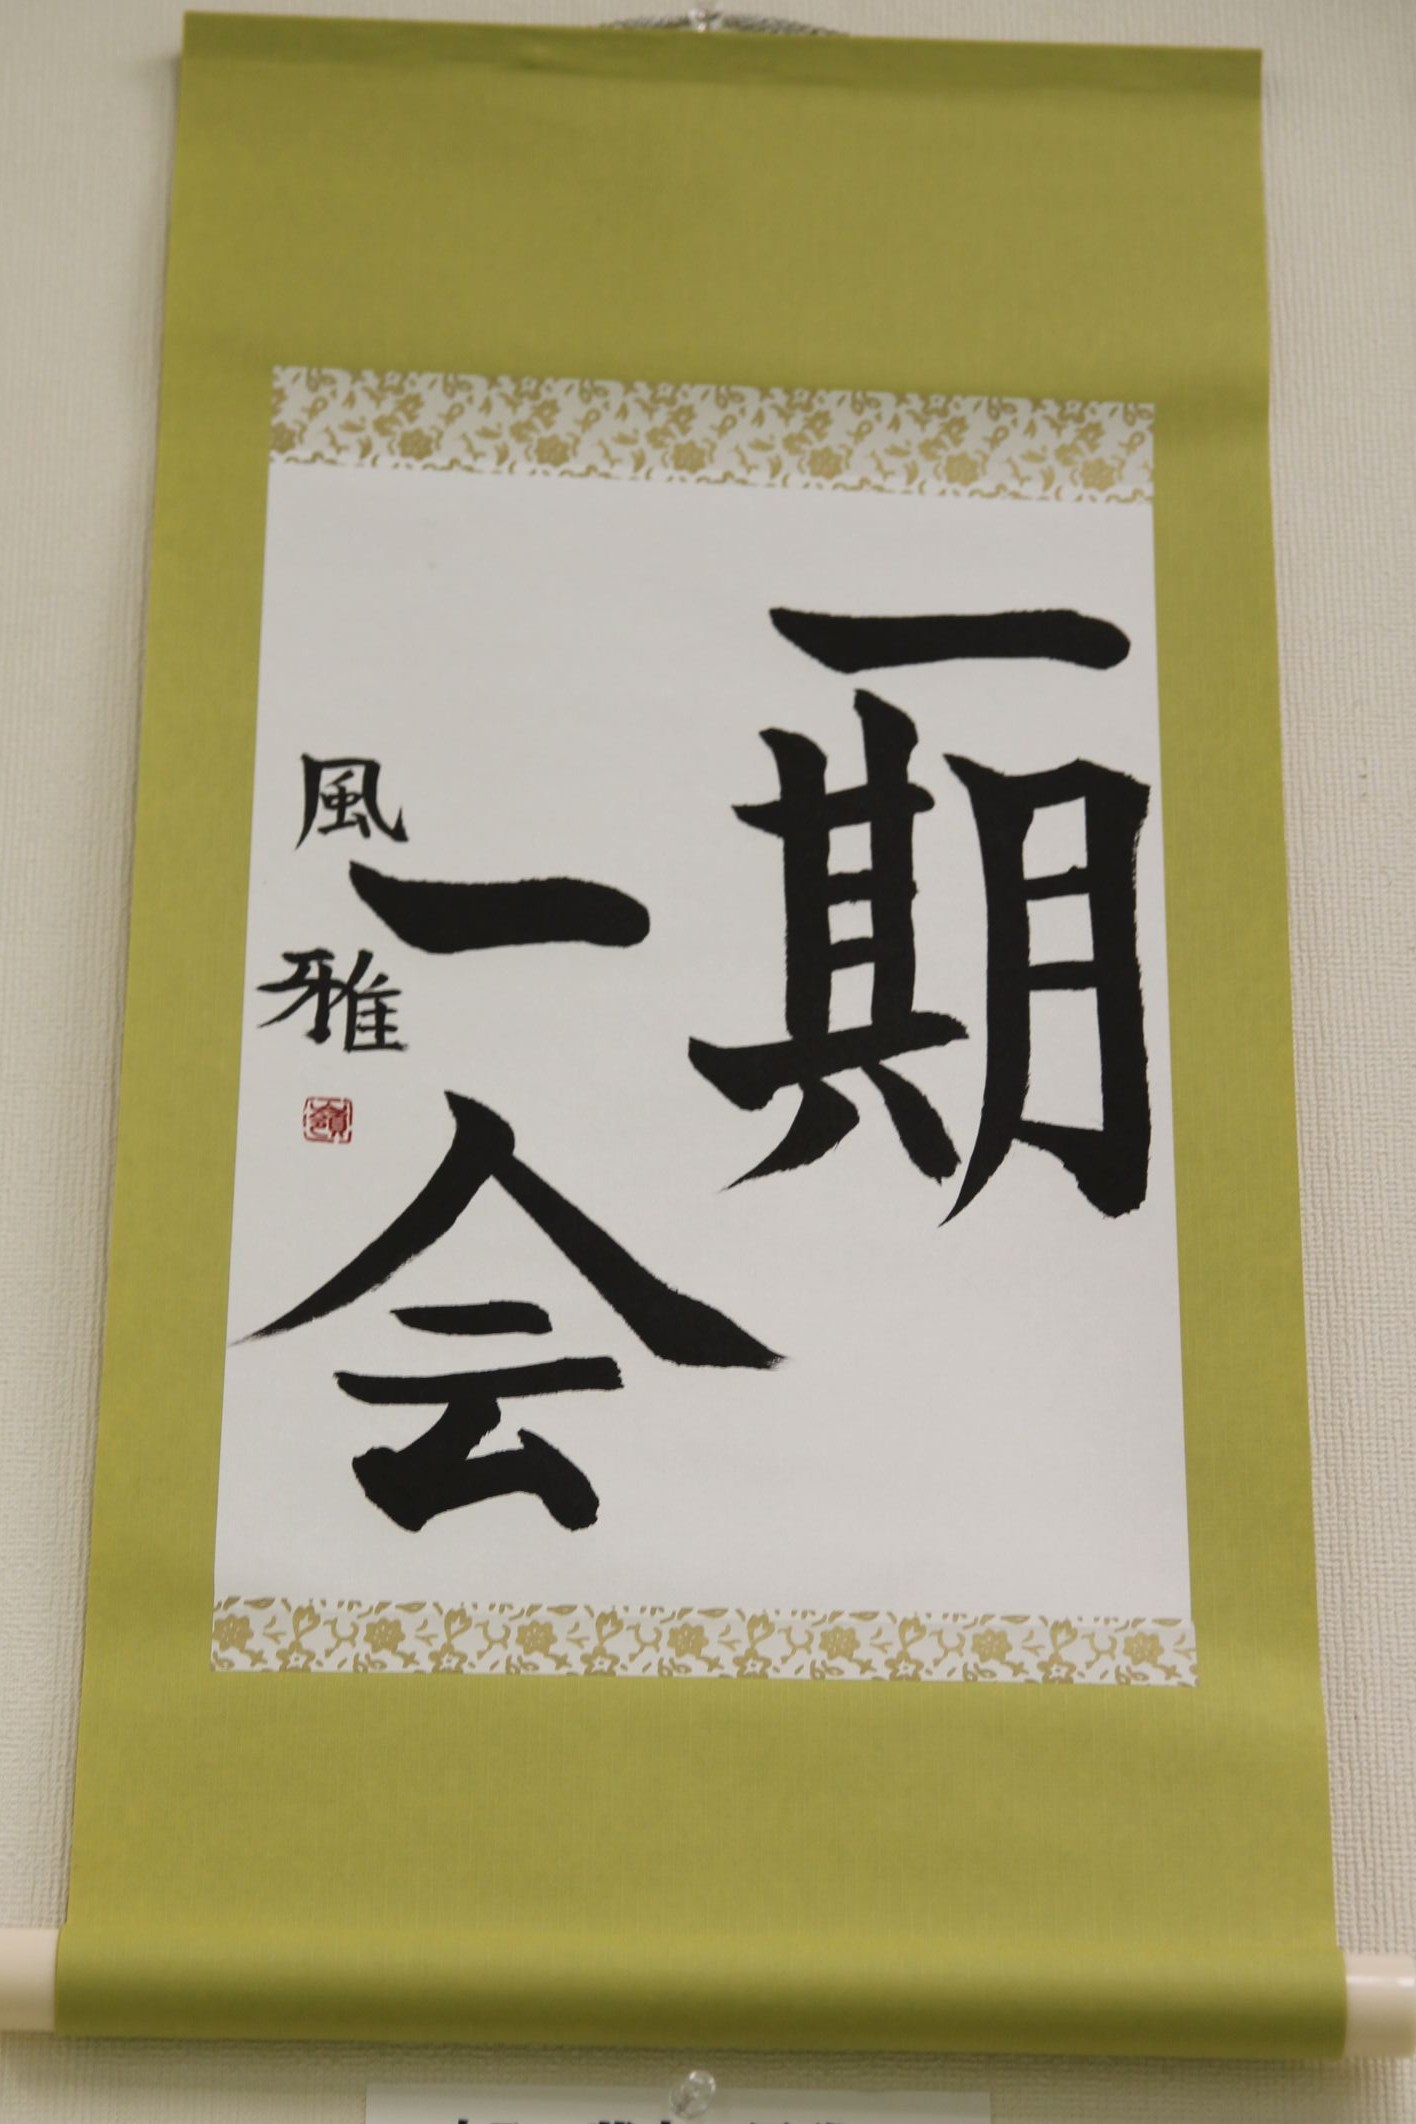 一期
一会
風雅